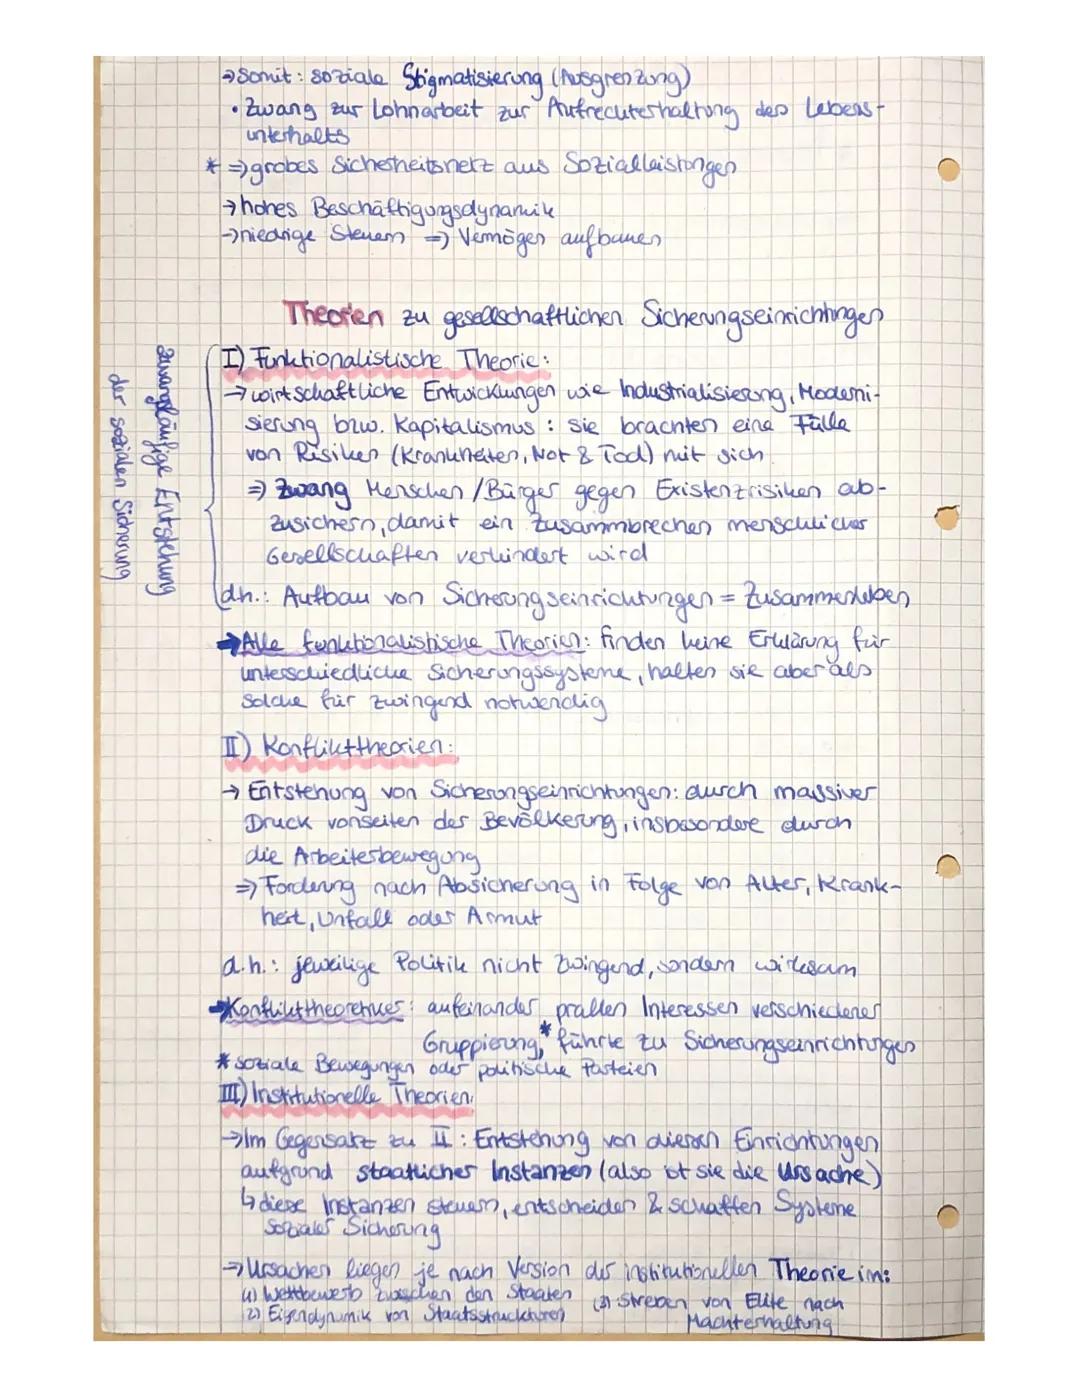 → Somit: soziale Stigmatisierung (Ausgrenzung)
• Zwang zur Lohnarbeit zur Aufrechterhaltung des Lebens-
unterhalts
* ⇒ grobes Sicherheitsnetz aus Sozialleistungen
→ hohes Beschäftigungsdynamik
→ niedrige Steuern ⇒ Vermögen aufbauen
Theorien zu gesellschaftlichen Sicherungseinrichtungen
zwangsläufige Entstehung
der sozialen Sicherung
I) Funktionalistische Theorie:
→ wirtschaftliche Entwicklungen wie Industrialisierung, Moderni-
sierung bzw. Kapitalismus: sie brachten eine Fülle
von Risiken (Krankheiten, Not & Tod) mit sich
⇒ Zwang Menschen/Bürger gegen Existenzrisiken ab-
zusichern, damit ein Zusammbrechen menschlicher
Gesellschaften verhindert wird
dh.: Aufbau von Sicherungseinrichtungen = Zusammenleben
→ Alle funktionalistische Theorien: finden keine Erklärung für
unterschiedliche Sicherungssysteme, halten sie aber als
solche für zwingend notwendig
II) Konflikttheorien:
→ Entstehung von Sicherungseinrichtungen: durch massiver
Druck vonseiten der Bevölkerung, insbesondere durch
die Arbeiterbewegung
⇒ Forderung nach Absicherung in Folge von Alter, Krank-
heit, Unfall oder Armut
d.h.: jeweilige Politik nicht zwingend, sondern wirksam
→ Konflikttheoretiker: aufeinander prallen Interessen verschiedener
Gruppierung,* führte zu Sicherungseinrichtungen
* soziale Bewegungen oder politische Parteien
III) Institutionelle Theorien:
→ Im Gegensatz zu II: Entstehung von diesen Einrichtungen
aufgrund staatlicher Instanzen (also ist sie die Ursache)
↳ diese Instanzen steuern, entscheiden & schaffen Systeme
sozialer Sicherung
→ Ursachen liegen je nach Version der institutionellen Theorie im:
(1) Wettbewerb zwischen den Staaten (3) Streben von Elite nach
(2) Eigendynamik von Staatsstrukturen Machterhaltung